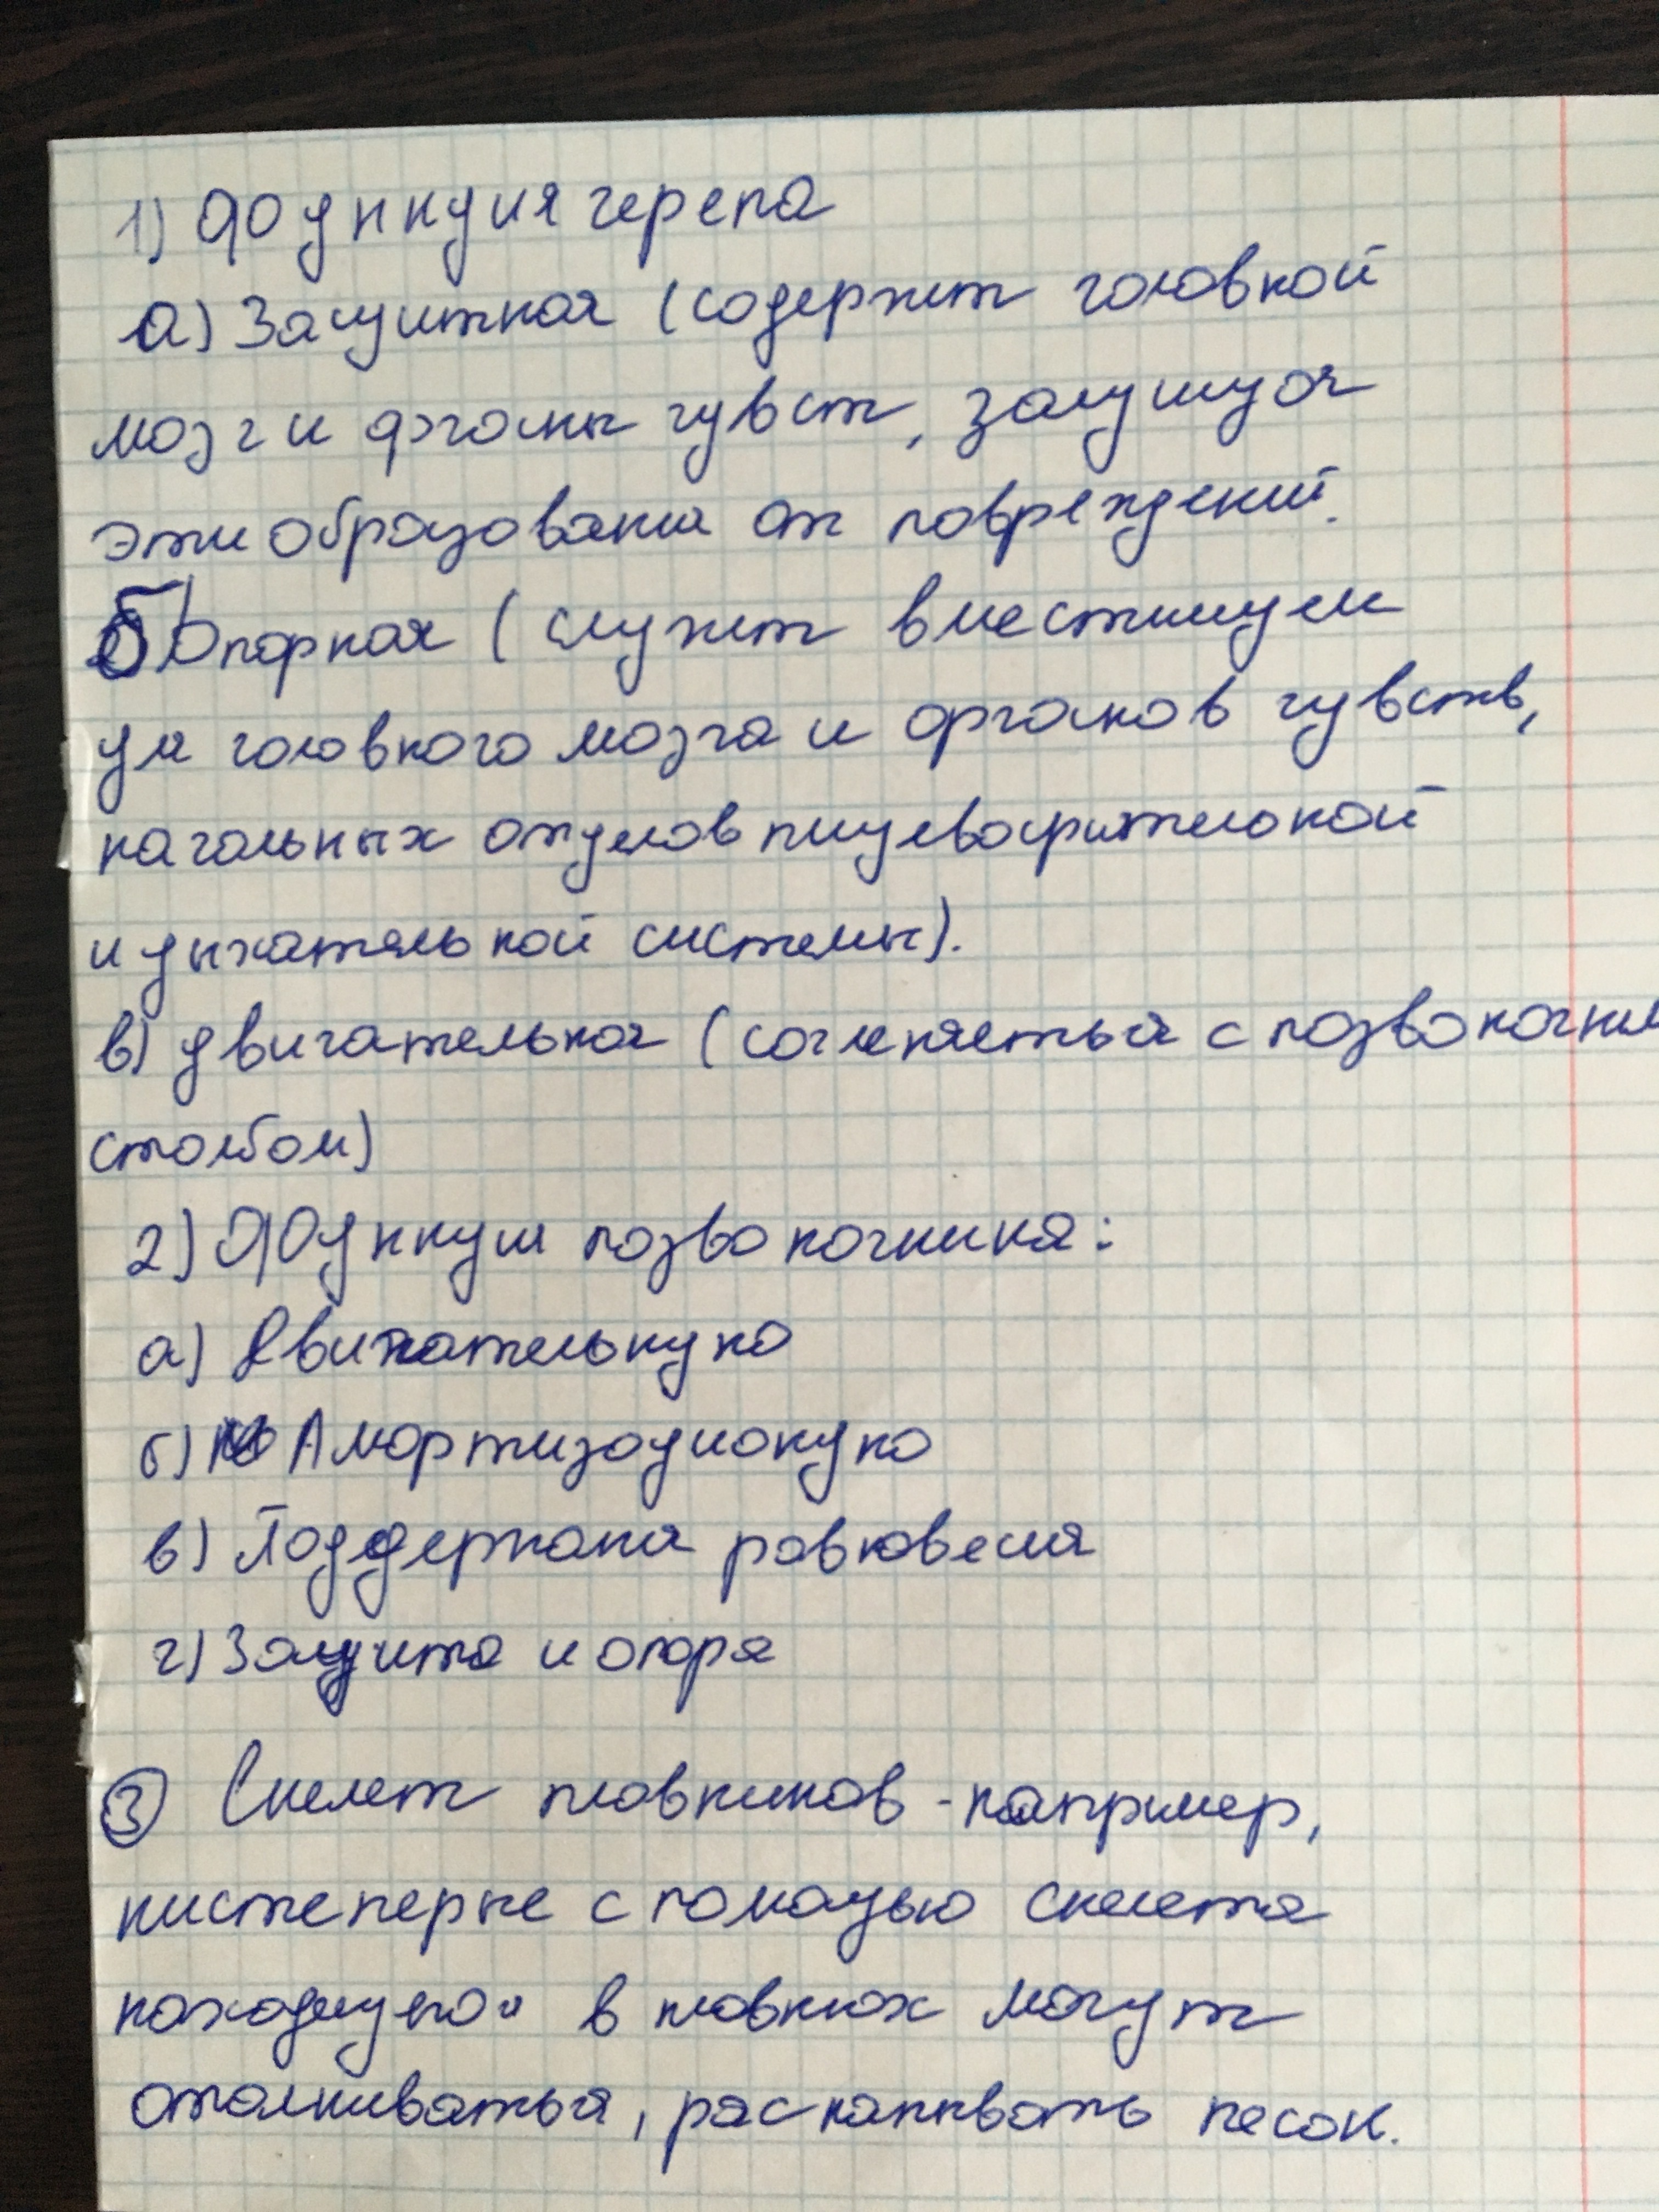 1) Функция черепа
а) Защитная (содержит головной
мозг и органы чувств, защищая
эти образования от повреждений.
б) Опорная (служит вместищем
для головного мозга и органов чувств,
начальных отделов пищеварительной
и дыхательной системы).
в) двигательная (сочленяется с позвоночным
столбом)
2) Функции позвоночника:
а) Двигательную
б) Амортизационную
в) Поддержания равновесия
г) Защита и опора
3 Скелет плавников - например,
кистеперые с помощью скелета
находящегося в плавниках могут
отталкиваться, раскапывать песок.